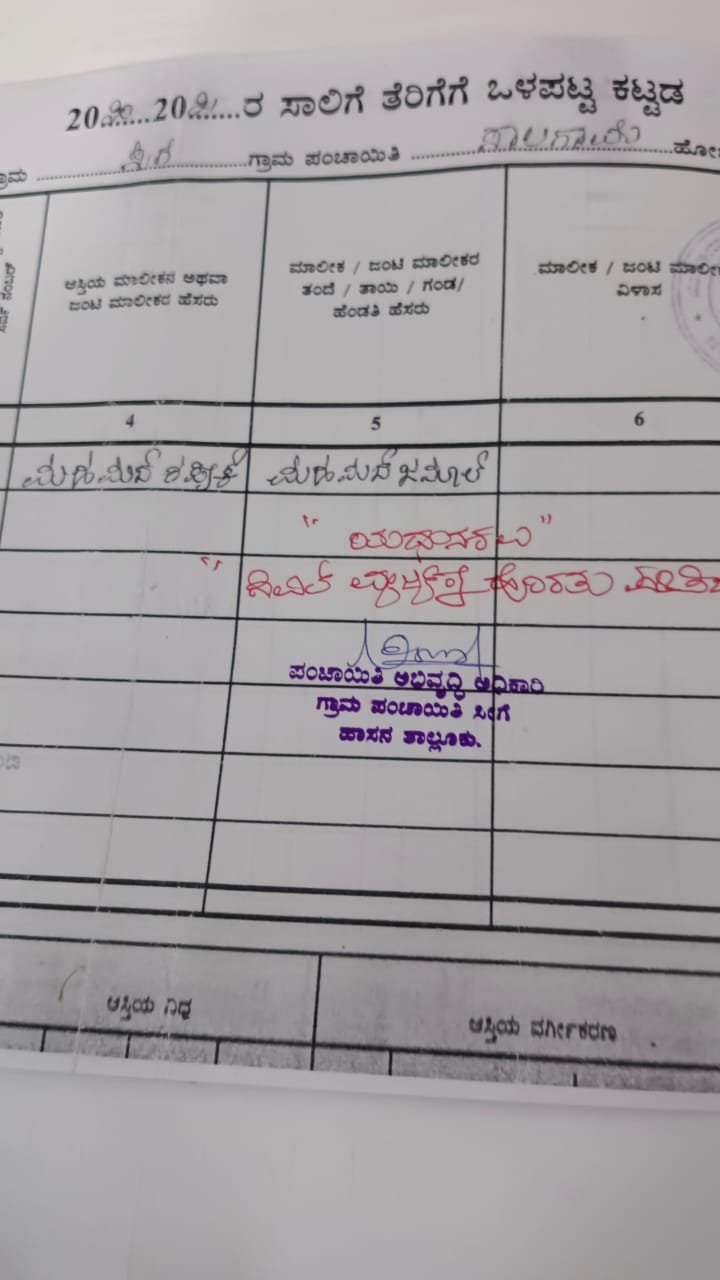 20 20 ರ ಸಾಲಿಗೆ ತೆರಿಗೆಗೆ ಒಳಪಟ್ಟ ಕಟ್ಟಡ
ಗ್ರಾಮ ಸೀಗೆ ಗ್ರಾಮ ಪಂಚಾಯಿತಿ ಸಾಲಗಾಮೆ
ಆಸ್ತಿಯ ಮಾಲೀಕನ ಅಥವಾ
ಜಂಟಿ ಮಾಲೀಕರ ಹೆಸರು
ಮಾಲೀಕ / ಜಂಟಿ ಮಾಲೀಕರ
ತಂದೆ / ತಾಯಿ / ಗಂಡ/
ಹೆಂಡತಿ ಹೆಸರು
ಮಾಲೀಕ / ಜಂಟಿ
ವಿಳಾಸ
4 5 6
ಮಹಮದ್ ರಫೀಕ್ ಮಹಮದ್ ಜಮಾಲ್
"ಯಥಾನಕಲು"
"ಸಿವಿಲ್ ವ್ಯಾಜ್ಯಕ್ಕೆ ಹೊರತು
ಪಂಚಾಯಿತಿ ಅಭಿವೃದ್ಧಿ ಅಧಿಕಾರಿ
ಗ್ರಾಮ ಪಂಚಾಯಿತಿ ಸೀಗೆ
ಹಾಸನ ತಾಲ್ಲೂಕು.
ಆಸ್ತಿಯ ವಿಧ ಆಸ್ತಿಯ ವರ್ಗೀಕರಣ